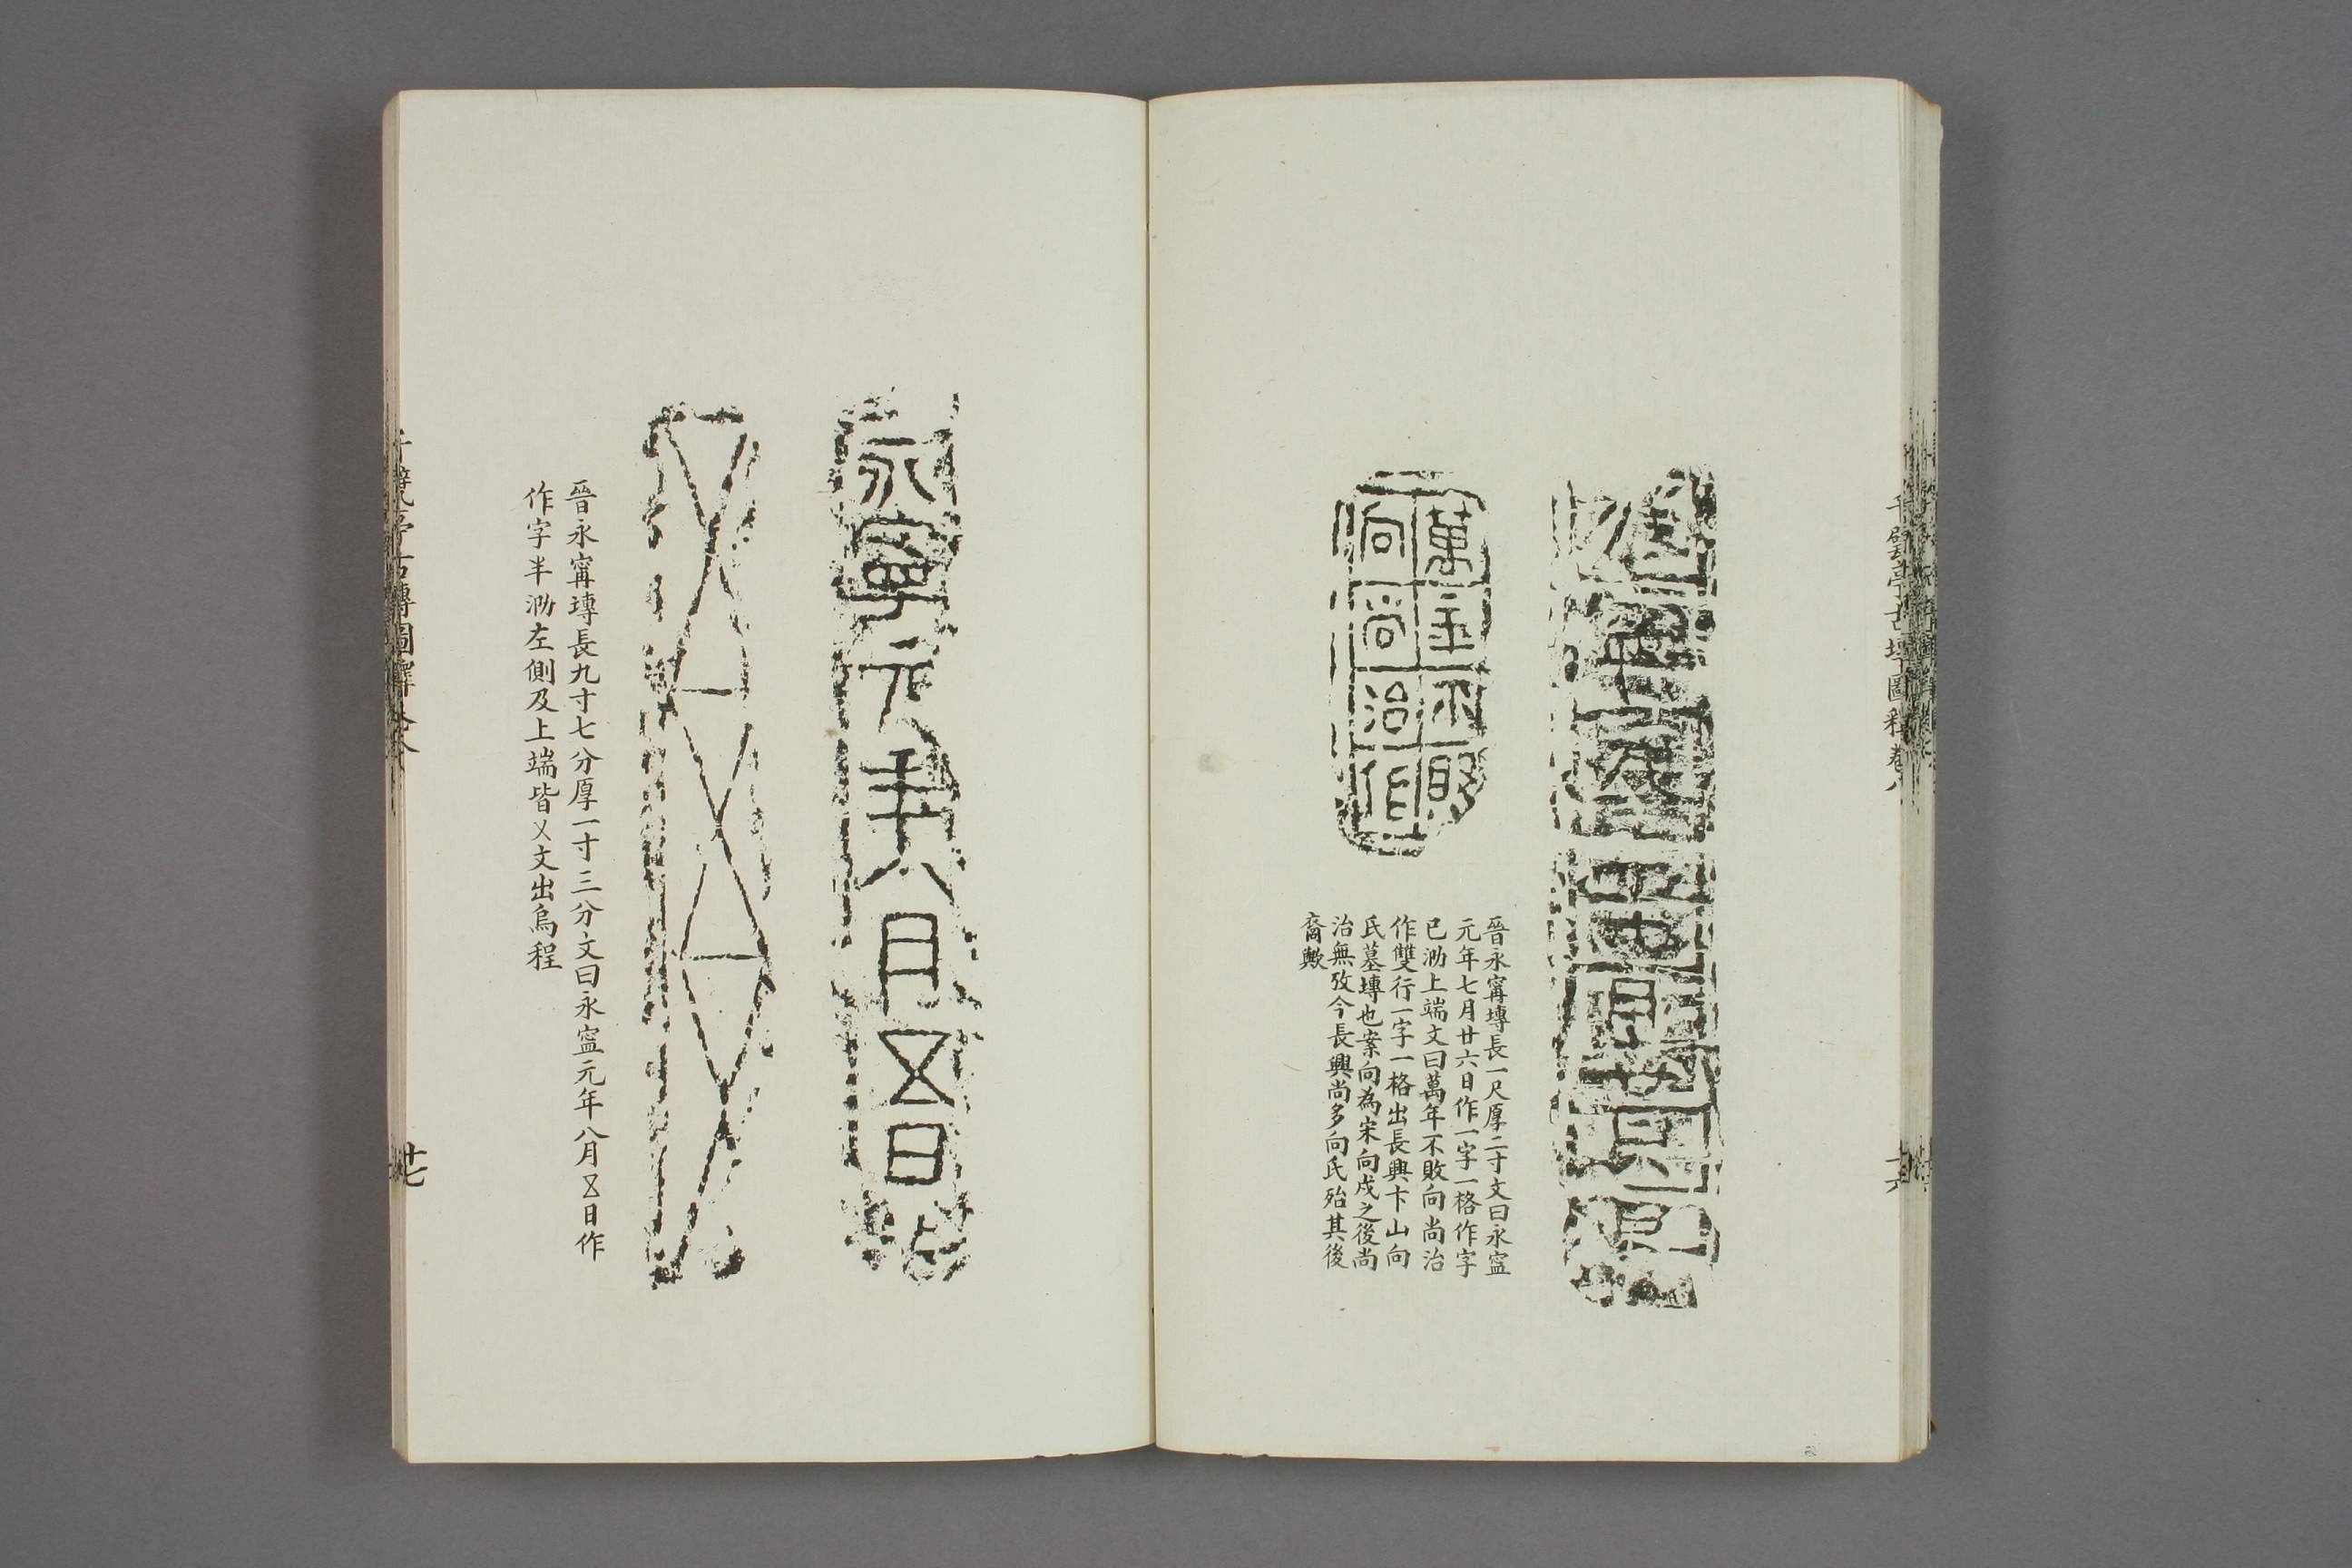 千甓亭古塼圖釋卷八
萬年不敗
向尚治作
晉永甯塼長一尺厚二寸文曰永寍
元年七月廿六日作一字一格作字
已泐上端文曰萬年不敗向尚治
作雙行一字一格出長興卞山向
氏墓塼也案向為宋向戍之後尚
治無攷今長興尚多向氏殆其後
裔歟
廿六
永寍元年八月㐅日作
晉永甯塼長九寸七分厚一寸三分文曰永寍元年八月㐅日作
作字半泐左側及上端皆㐅文出烏程
千甓亭古塼圖釋卷八
廿七